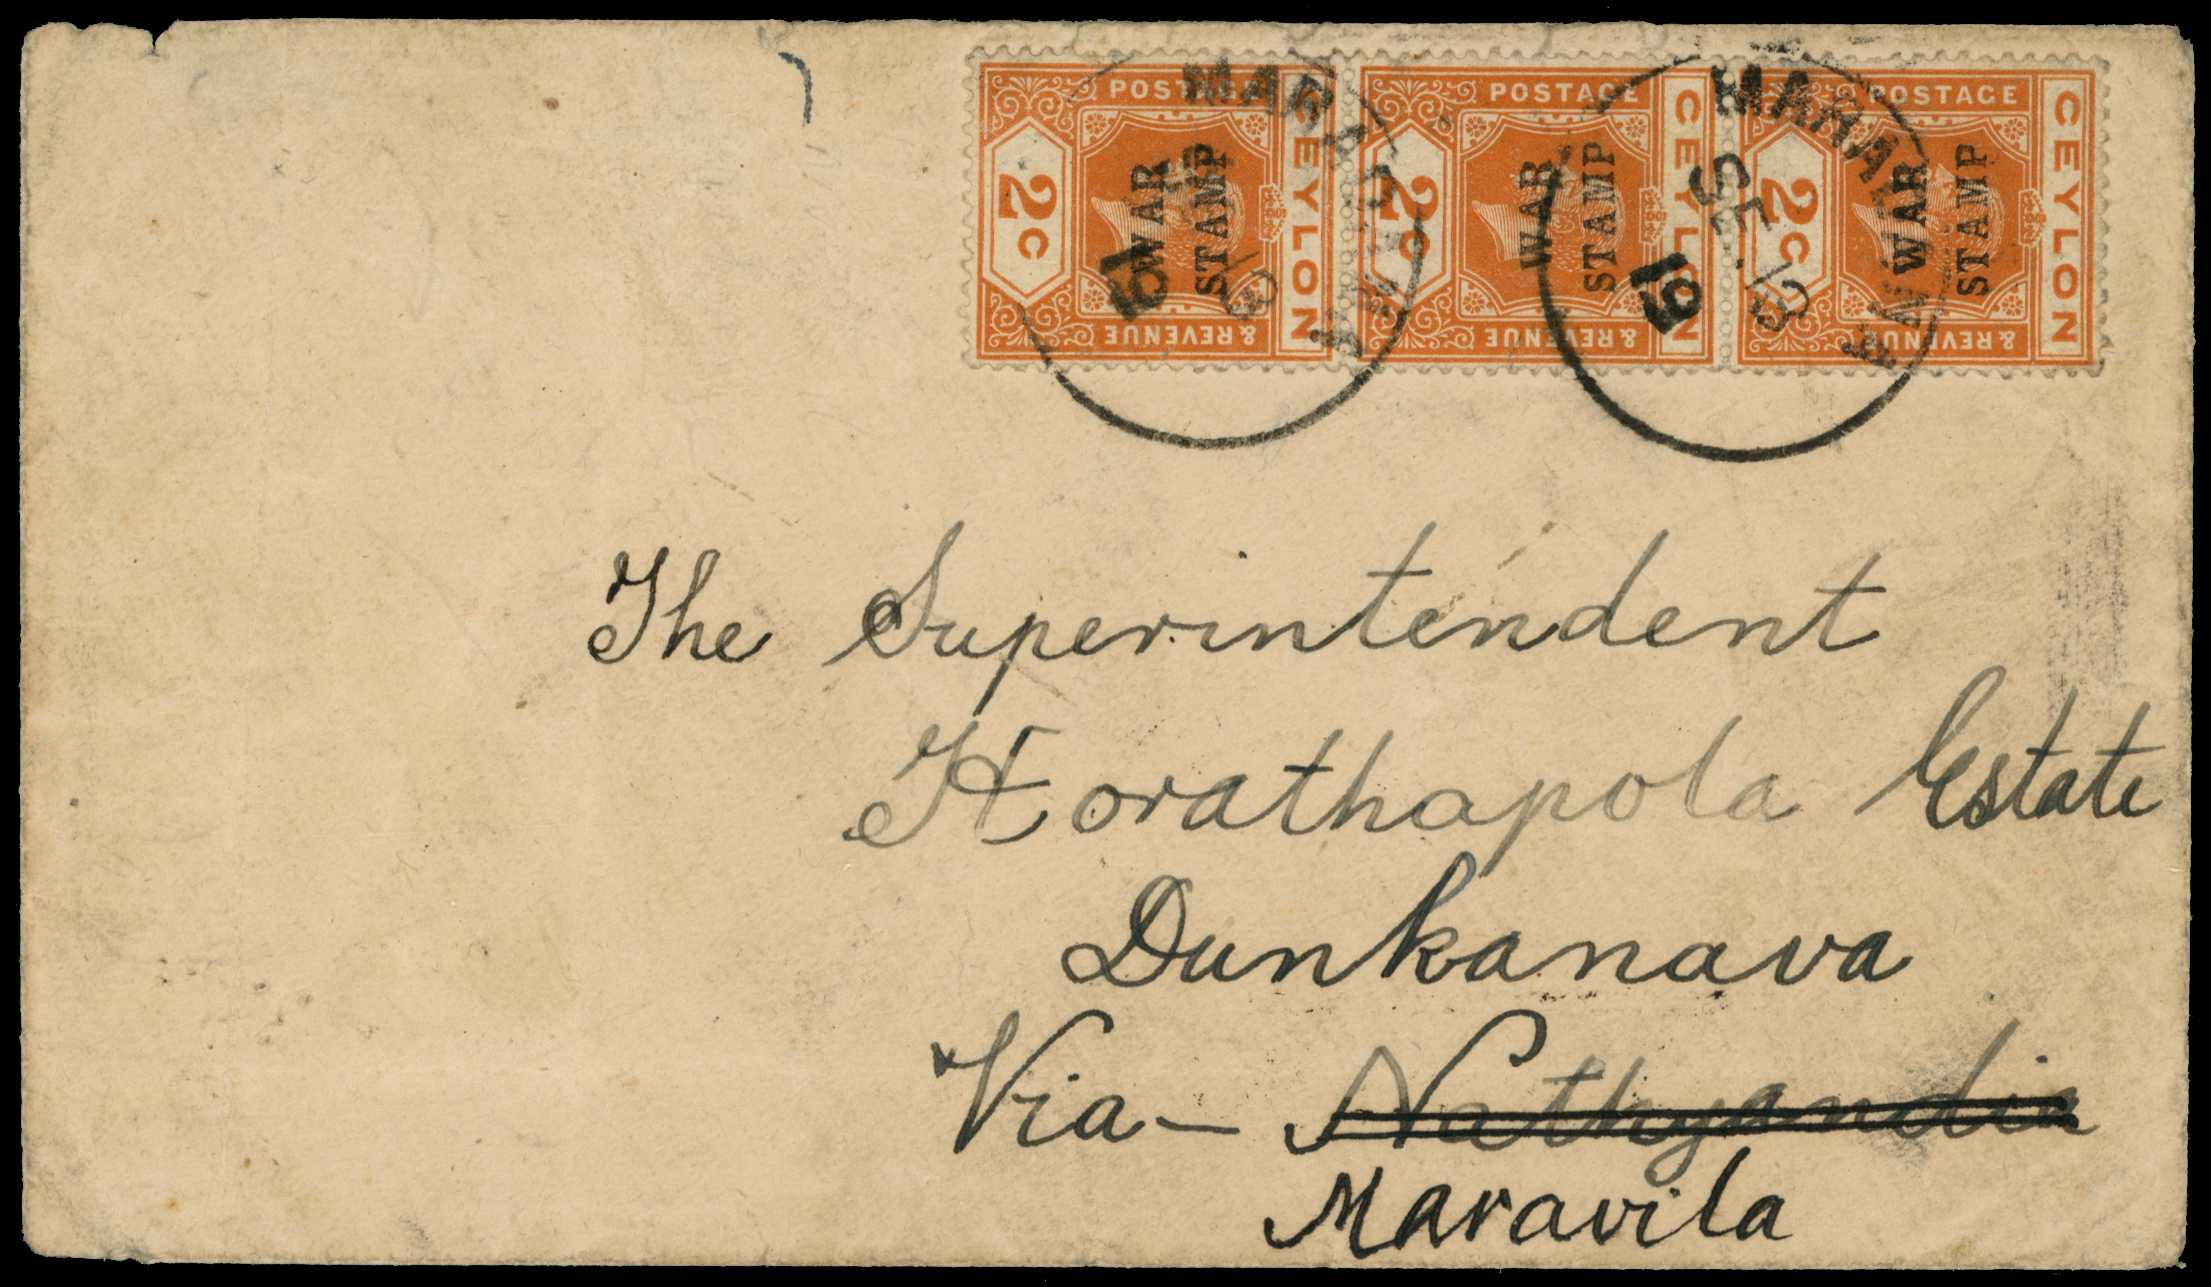 POSTAGE
CEYLON
2C
WAR
STAMP
& REVENUE
POSTAGE
CEYLON
2C
WAR
STAMP
& REVENUE
POSTAGE
CEYLON
2C
WAR
STAMP
& REVENUE
SE 13
19
SE . 13
19
The Superintendent
Horathapola Estate
Dunkanava
Via - Nathyandia
Maravila